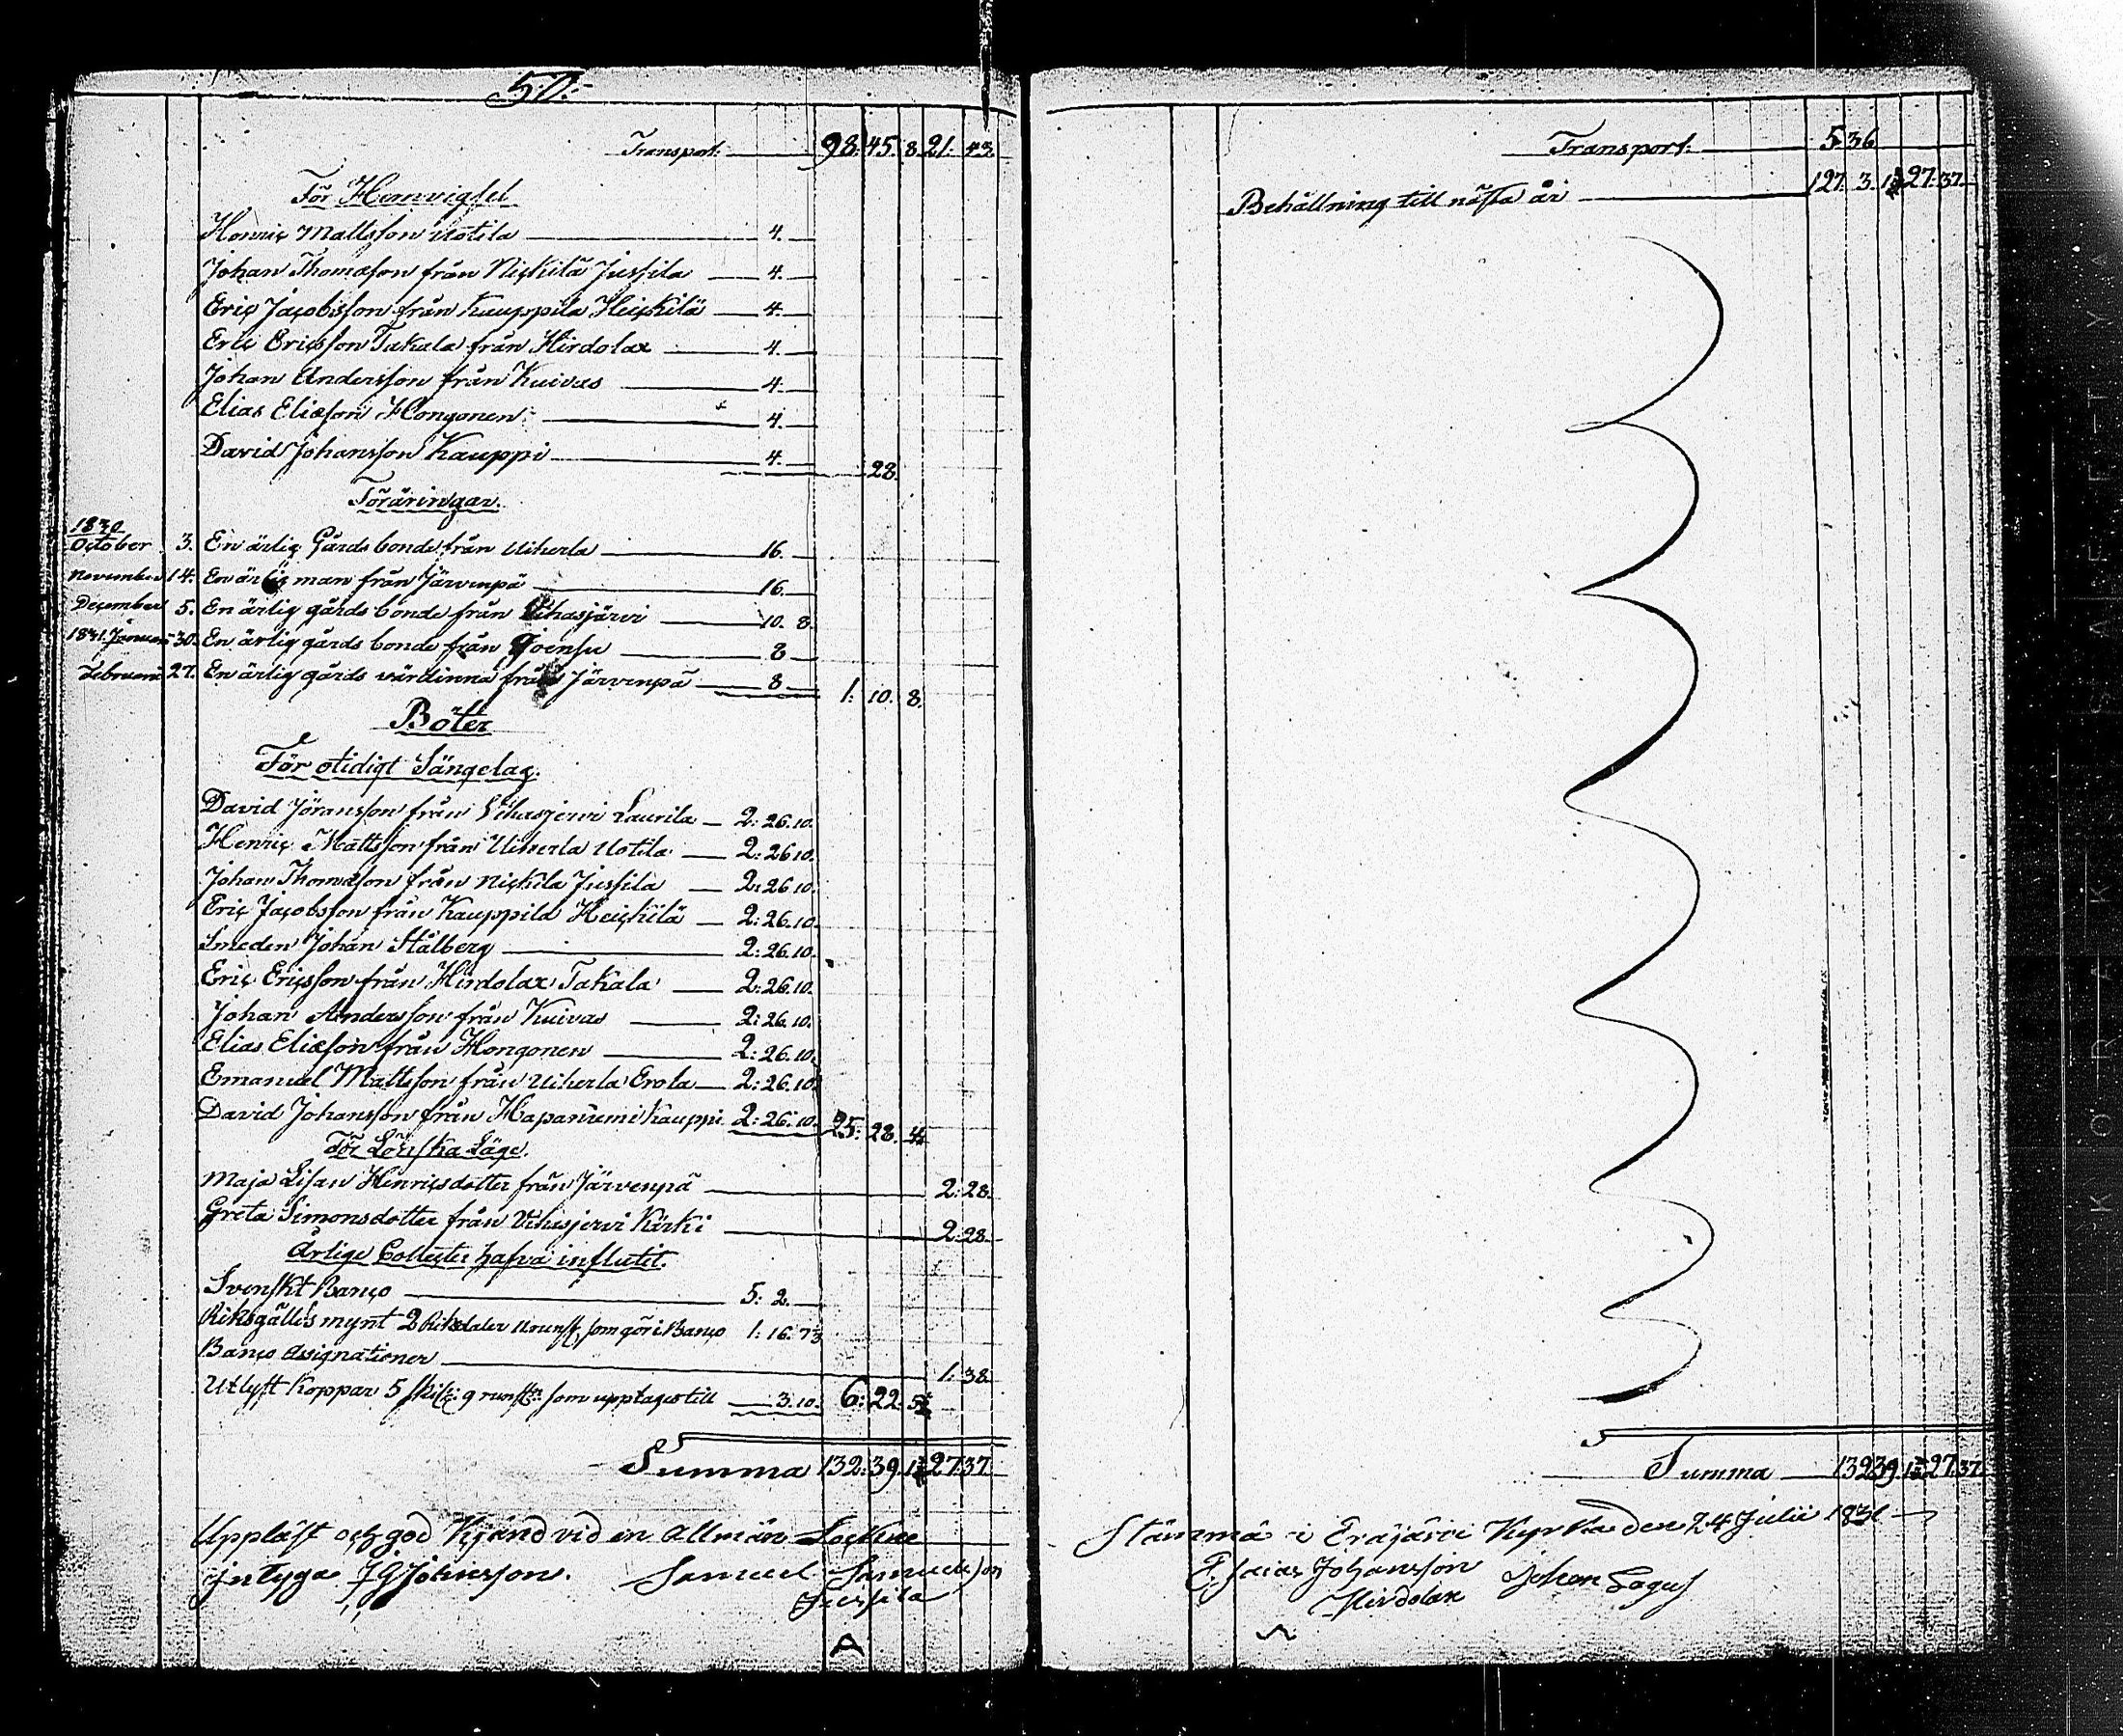 50.
Transport. 98. 45. 8. 21. 43.
För Hemvigsel
Henric Mattsson Uotila 4.
Johan Thomasson från Nickilä Jussila 4.
Eric Jacobsson från Kauppila Heickilä 4.
Eric Ericsson Takala från Hirdolax 4.
Johan Andersson från Kuivas 4.
Elias Eliæson Hongonen 4.
David Johansson Kauppi 4. 28.
Föräringar.
1830
October 3. En ärlig Gårds bonde från Uiherla 16.
November 14. En ärlig man från Järvenpä 16.
December 5. En ärlig gårds bonde från Vihasjärvi 10. 8.
1831. Januari 30. En ärlig gårds bonde från Joensu 8
Februari 27. En ärlig gårds värdinna från Järvenpä 8 1. 10. 8.
Böter
För otidigt Sängelag.
David Jöransson från Vihasjervi Laurila 2: 26. 10.
Henric Mattsson från Uiherla Uotila 2: 26 10.
Johan Thomasson från Nickila Jussila 2: 26 10.
Eric Jacobsson från Kauppila Heickilä 2: 26. 10.
Smeden Johan Stålberg 2: 26. 10.
Eric Ericsson från Hirdolax Takala 2: 26. 10.
Johan Andersson från Kuivas 2: 26. 10.
Elias Eliæson från Hongonen 2: 26. 10.
Emanuel Mattsson från Uiherla Erola 2: 26. 10.
David Johansson från Hapaniemi Kauppi 2: 26. 10. 25: 28. 4.
För Lönska Läge.
Maja Lisan Henricsdotter från Järvenpä 2: 28.
Greta Simonsdotter från Vihasjervi Kirki 2: 28.
Årlige Collecter hafva influtit.
Svenskt Banco 5: 2.
Riksgälds mynt 2 Riksdaler som gör i Banco 1: 16. 7
Banco Assignationer 1. 38.
Utlyft Koppar 5 skil: 9 runst: som upptages till 3. 10. 6: 22. 5
Summa 132: 39. 1 27 37.
Uppläst och god Kjänd vid en allmän Sockne
intyga J G Johnsson. Samuel Samuelsson
Jussila
A
Transport. 5 36
Behållning till nästa år 127. 3. 1 27: 37.
Summa 132 39 1 27. 37.
Stämma i Eräjärvi Kyrka den 24 Julii 1831
Esaias Johansson Johan Lagus
Hirdolax
KORAKSI SÄILYTETTYÄ